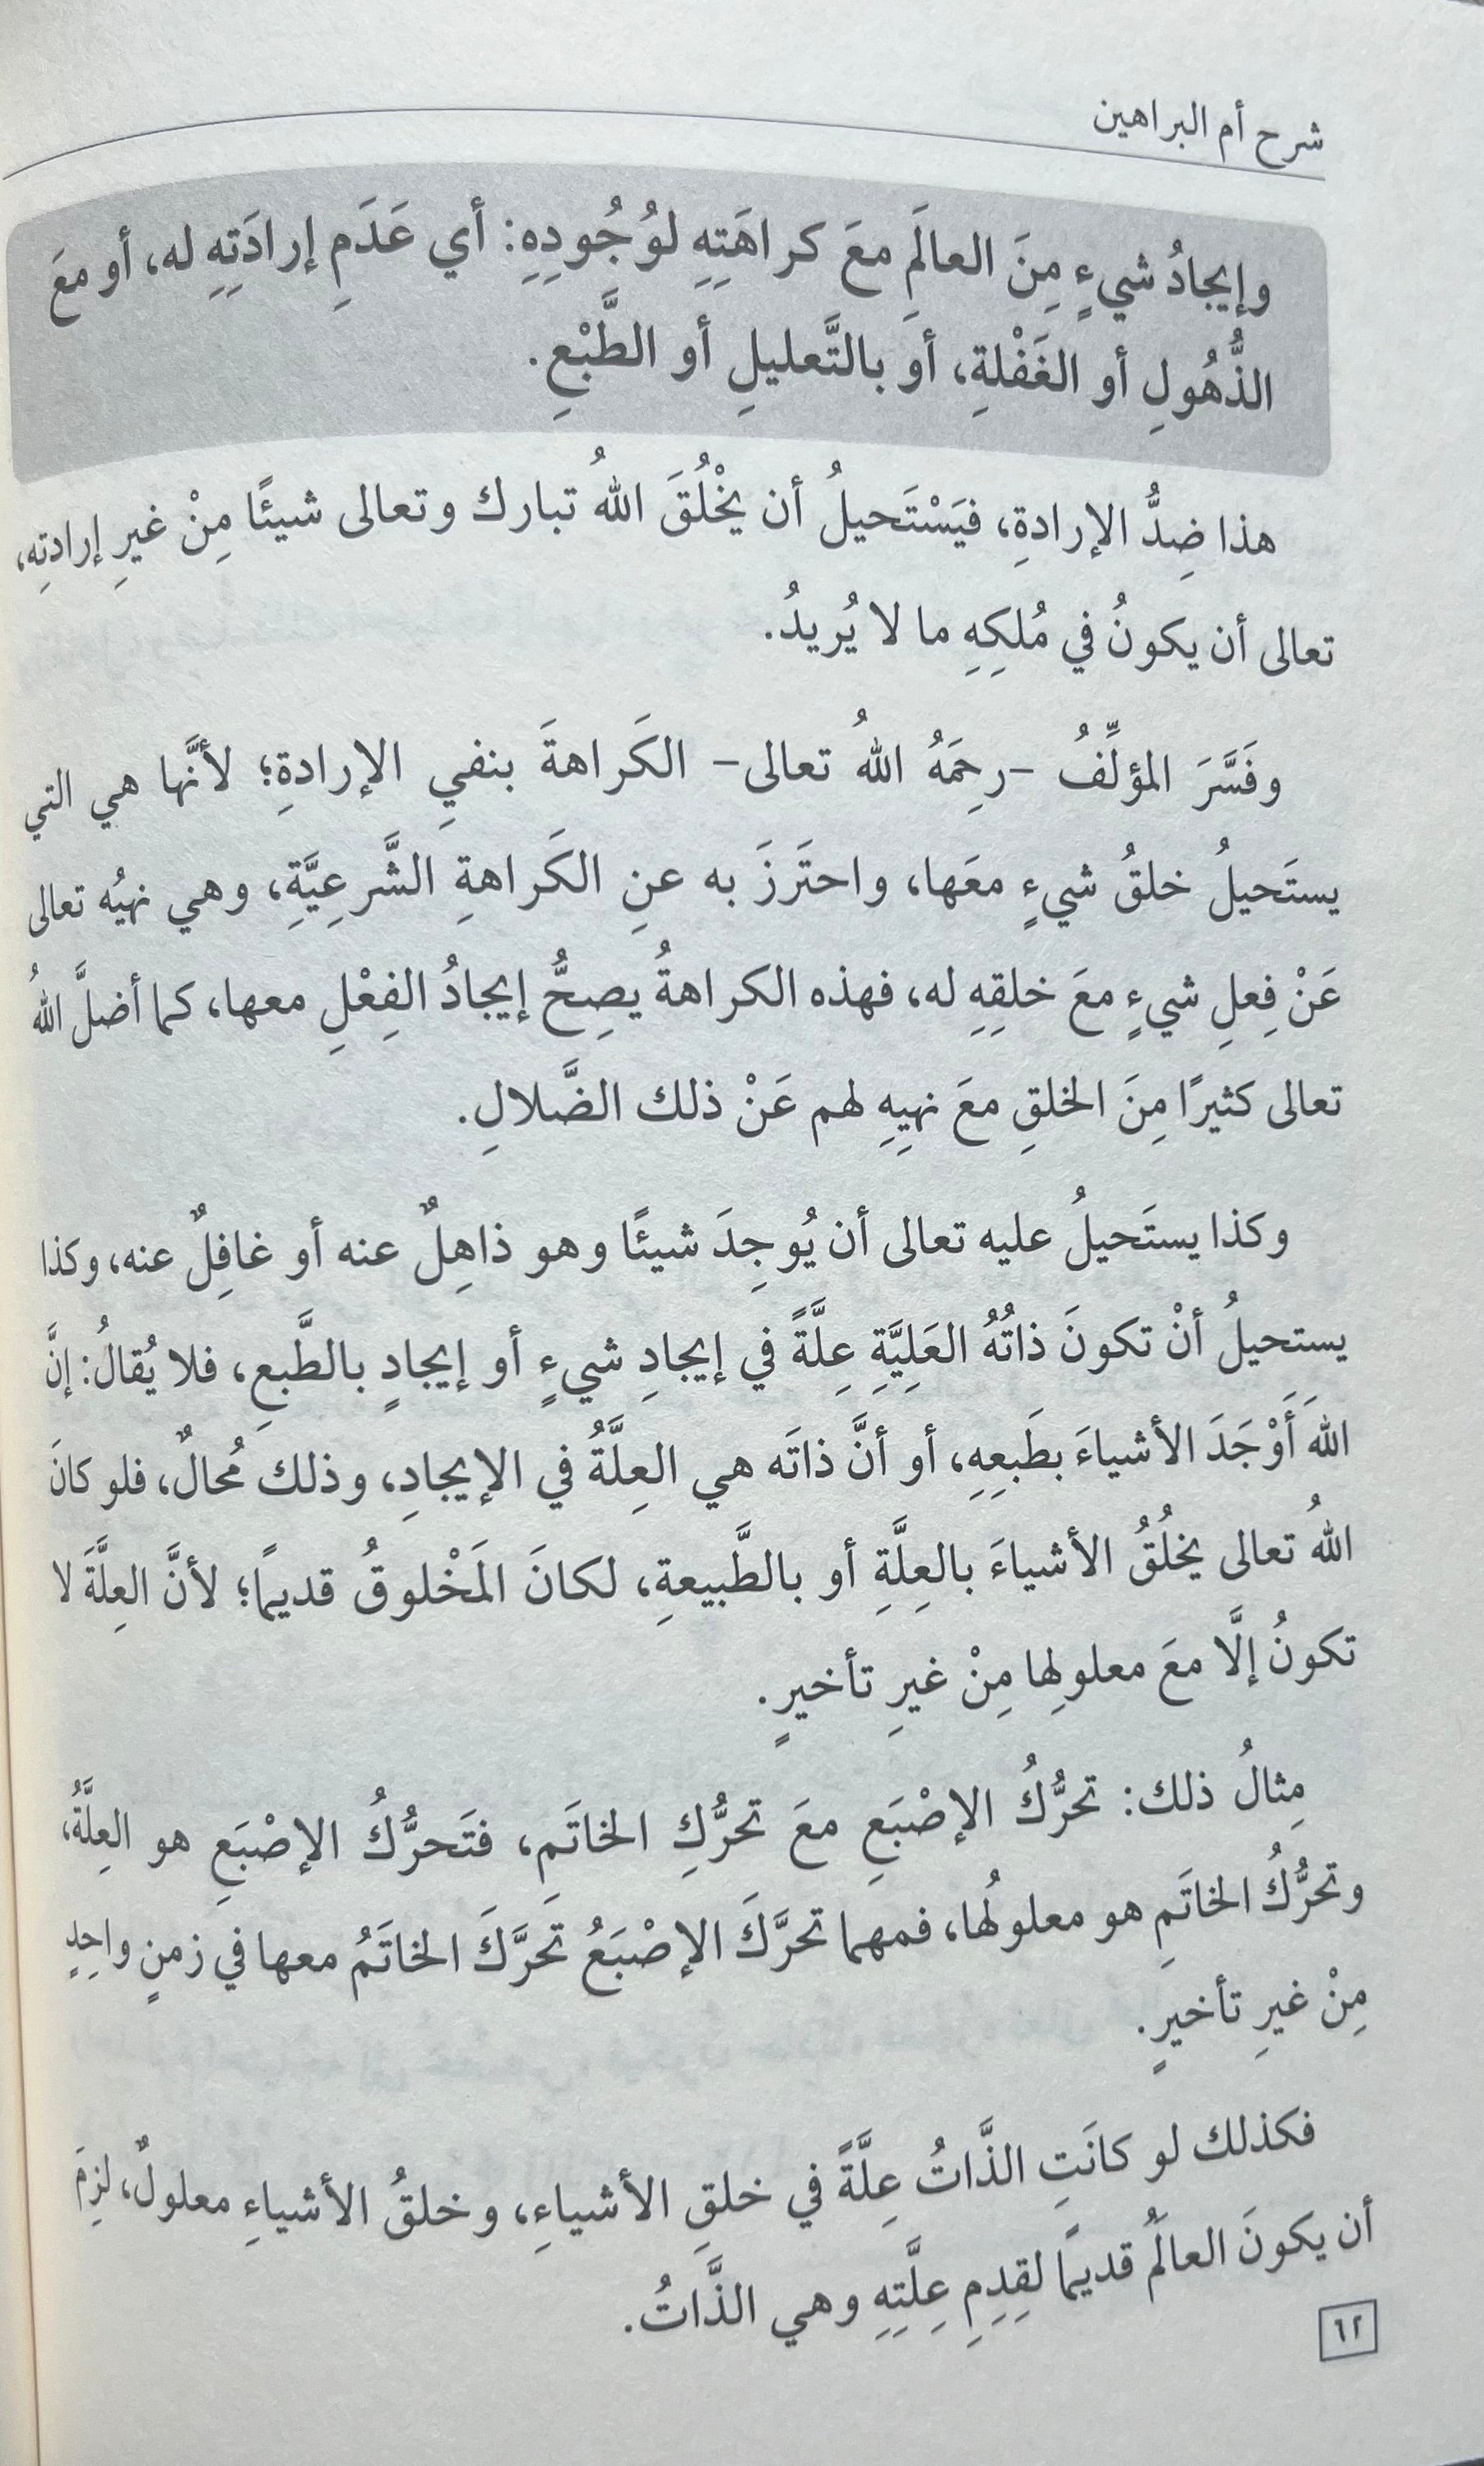 شرح أم البراهين
وإيجادُ شيءٍ مِنَ العالَمِ معَ كراهَتِهِ لوُجُودِهِ: أي عَدَمِ إرادَتِهِ له، أو معَ
الذُّهُولِ أو الغَفْلةِ، أو بالتَّعليلِ أو الطَّبْعِ.
هذا ضِدُّ الإرادةِ، فيَسْتَحيلُ أن يَخْلُقَ اللهُ تبارك وتعالى شيئًا مِنْ غيرِ إرادتِه،
تعالى أن يكونُ في مُلكِهِ ما لا يُريدُ.
وفَسَّرَ المؤلِّفُ -رحِمَهُ اللهُ تعالى- الكَراهةَ بنفيِ الإرادةِ؛ لأنَّها هي التي
يستَحيلُ خلقُ شيءٍ معَها، واحتَرزَ به عنِ الكَراهةِ الشَّرعِيَّةِ، وهي نهيُه تعالى
عَنْ فِعلِ شيءٍ معَ خلقِهِ له، فهذه الكراهةُ يصِحُّ إيجادُ الفِعْلِ معها، كما أضلَّ اللهُ
تعالى كثيرًا مِنَ الخلقِ معَ نهيِهِ لهم عَنْ ذلك الضَّلالِ.
وكذا يستَحيلُ عليه تعالى أن يُوجِدَ شيئًا وهو ذاهِلٌ عنه أو غافِلٌ عنه، وكذا
يستحيلُ أنْ تكونَ ذاتُهُ العَلِيَّةِ عِلَّةً في إيجادِ شيءٍ أو إيجادٍ بالطَّبعِ، فلا يُقالُ: إنَّ
اللهَ أَوْجَدَ الأشياءَ بطَبعِهِ، أو أنَّ ذاتَه هي العِلَّةُ في الإيجادِ، وذلك مُحالٌ، فلو كانَ
اللهُ تعالى يخلُقُ الأشياءَ بالعِلَّةِ أو بالطَّبيعةِ، لكانَ المَخْلوقُ قديمًا؛ لأنَّ العِلَّةَ لا
تكونُ إلَّا معَ معلولِها مِنْ غيرِ تأخيرٍ.
مِثالُ ذلك: تحرُّكُ الإصْبَعِ معَ تحرُّكِ الخاتَم، فتَحرُّكُ الإصْبَعِ هو العِلَّةُ،
وتحرُّكُ الخاتَمِ هو معلولُها، فمهما تحرَّكَ الإصْبَعُ تَحرَّكَ الخاتَمُ معها في زمنٍ واحِدٍ
مِنْ غيرِ تأخيرٍ.
فكذلك لو كانَتِ الذَّاتُ عِلَّةً في خلقِ الأشياءِ، وخلقُ الأشياءِ معلولٌ، لزِمَ
أن يكونَ العالَمُ قديمًا لقِدِمِ عِلَّتِهِ وهي الذَّاتُ.
٦٢